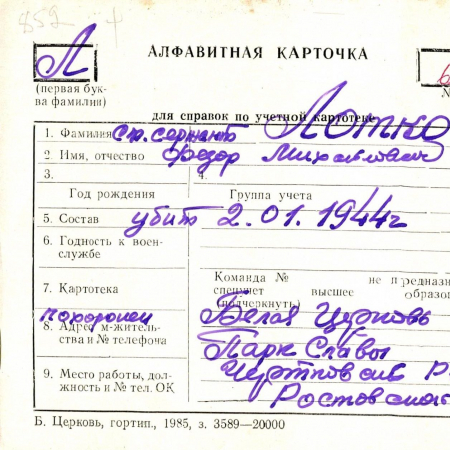 852
Л
АЛФАВИТНАЯ КАРТОЧКА
(первая бук-
ва фамилии)
для справок по учетной картотеке
1. Фамилия Ст. сержант Лотко
2. Имя, отчество Федор Михайлович
3.
4.
Год рождения
Группа учета
5. Состав убит 2.01.1944г
6. Годность к воен-
службе
Команда № не предназн
7. Картотека
спецучет высшее образо
(подчеркнуть)
похоронен Белая Церковь
8. Адрес м-житель-
ства и № телефоча
Парк Славы
9. Место работы, дол-
жность и № тел. ОК
Чертков р
Ростовская
Б. Церковь, гортип., 1985, з. 3589—20000